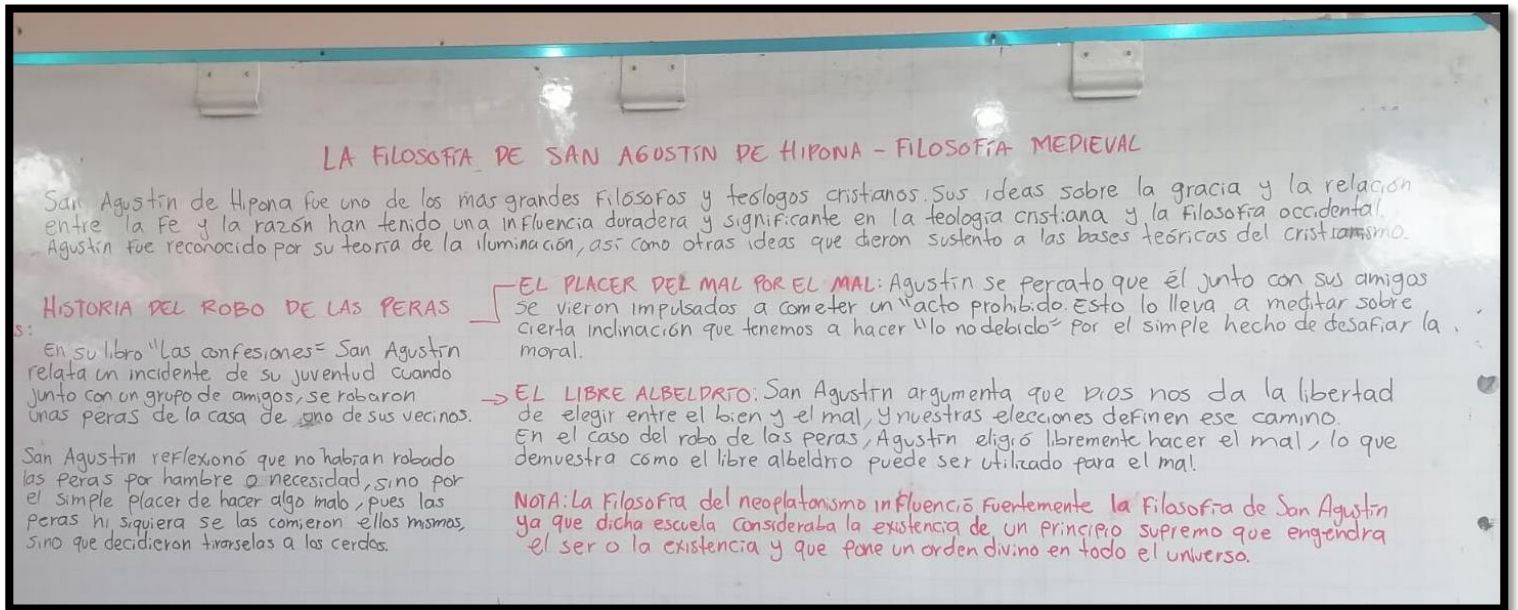 LA FILOSOFÍA DE SAN AGUSTÍN DE HIPONA - FILOSOFÍA MEDIEVAL
San Agustín de Hipona fue uno de los mas grandes Filósofos y teólogos cristianos. Sus ideas sobre la gracia y la relación
entre la Fe y la razón han tenido una influencia duradera y significante en la teología cristiana y la Filosofía occidental.
Agustín fue reconocido por su teoría de la iluminación, así como otras ideas que dieron sustento a las bases teóricas del cristianismo.
HISTORIA DEL ROBO DE LAS PERAS
s:
En su libro "Las confesiones" San Agustín
relata un incidente de su juventud cuando
junto con un grupo de amigos, se robaron
unas peras de la casa de uno de sus vecinos.
San Agustín reflexionó que no habían robado
las peras por hambre o necesidad, sino por
el simple placer de hacer algo malo, pues las
peras ni siquiera se las comieron ellos mismos,
sino que decidieron tirarselas a los cerdos.
EL PLACER DEL MAL POR EL MAL: Agustín se percato que él junto con sus amigos
se vieron impulsados a cometer un "acto prohibido. Esto lo lleva a meditar sobre
cierta inclinación que tenemos a hacer "lo no debido" por el simple hecho de desafiar la
moral.
→ EL LIBRE ALBELDRÍO: San Agustín argumenta que Dios nos da la libertad
de elegir entre el bien y el mal, y nuestras elecciones definen ese camino.
En el caso del robo de las peras, Agustín eligió libremente hacer el mal, lo que
demuestra cómo el libre albeldrío puede ser utilizado para el mal.
NOTA: La Filosofía del neoplatonismo influenció fuertemente la filosofía de San Agustín
ya que dicha escuela consideraba la existencia de un principio supremo que engendra
el ser o la existencia y que pone un orden divino en todo el universo.